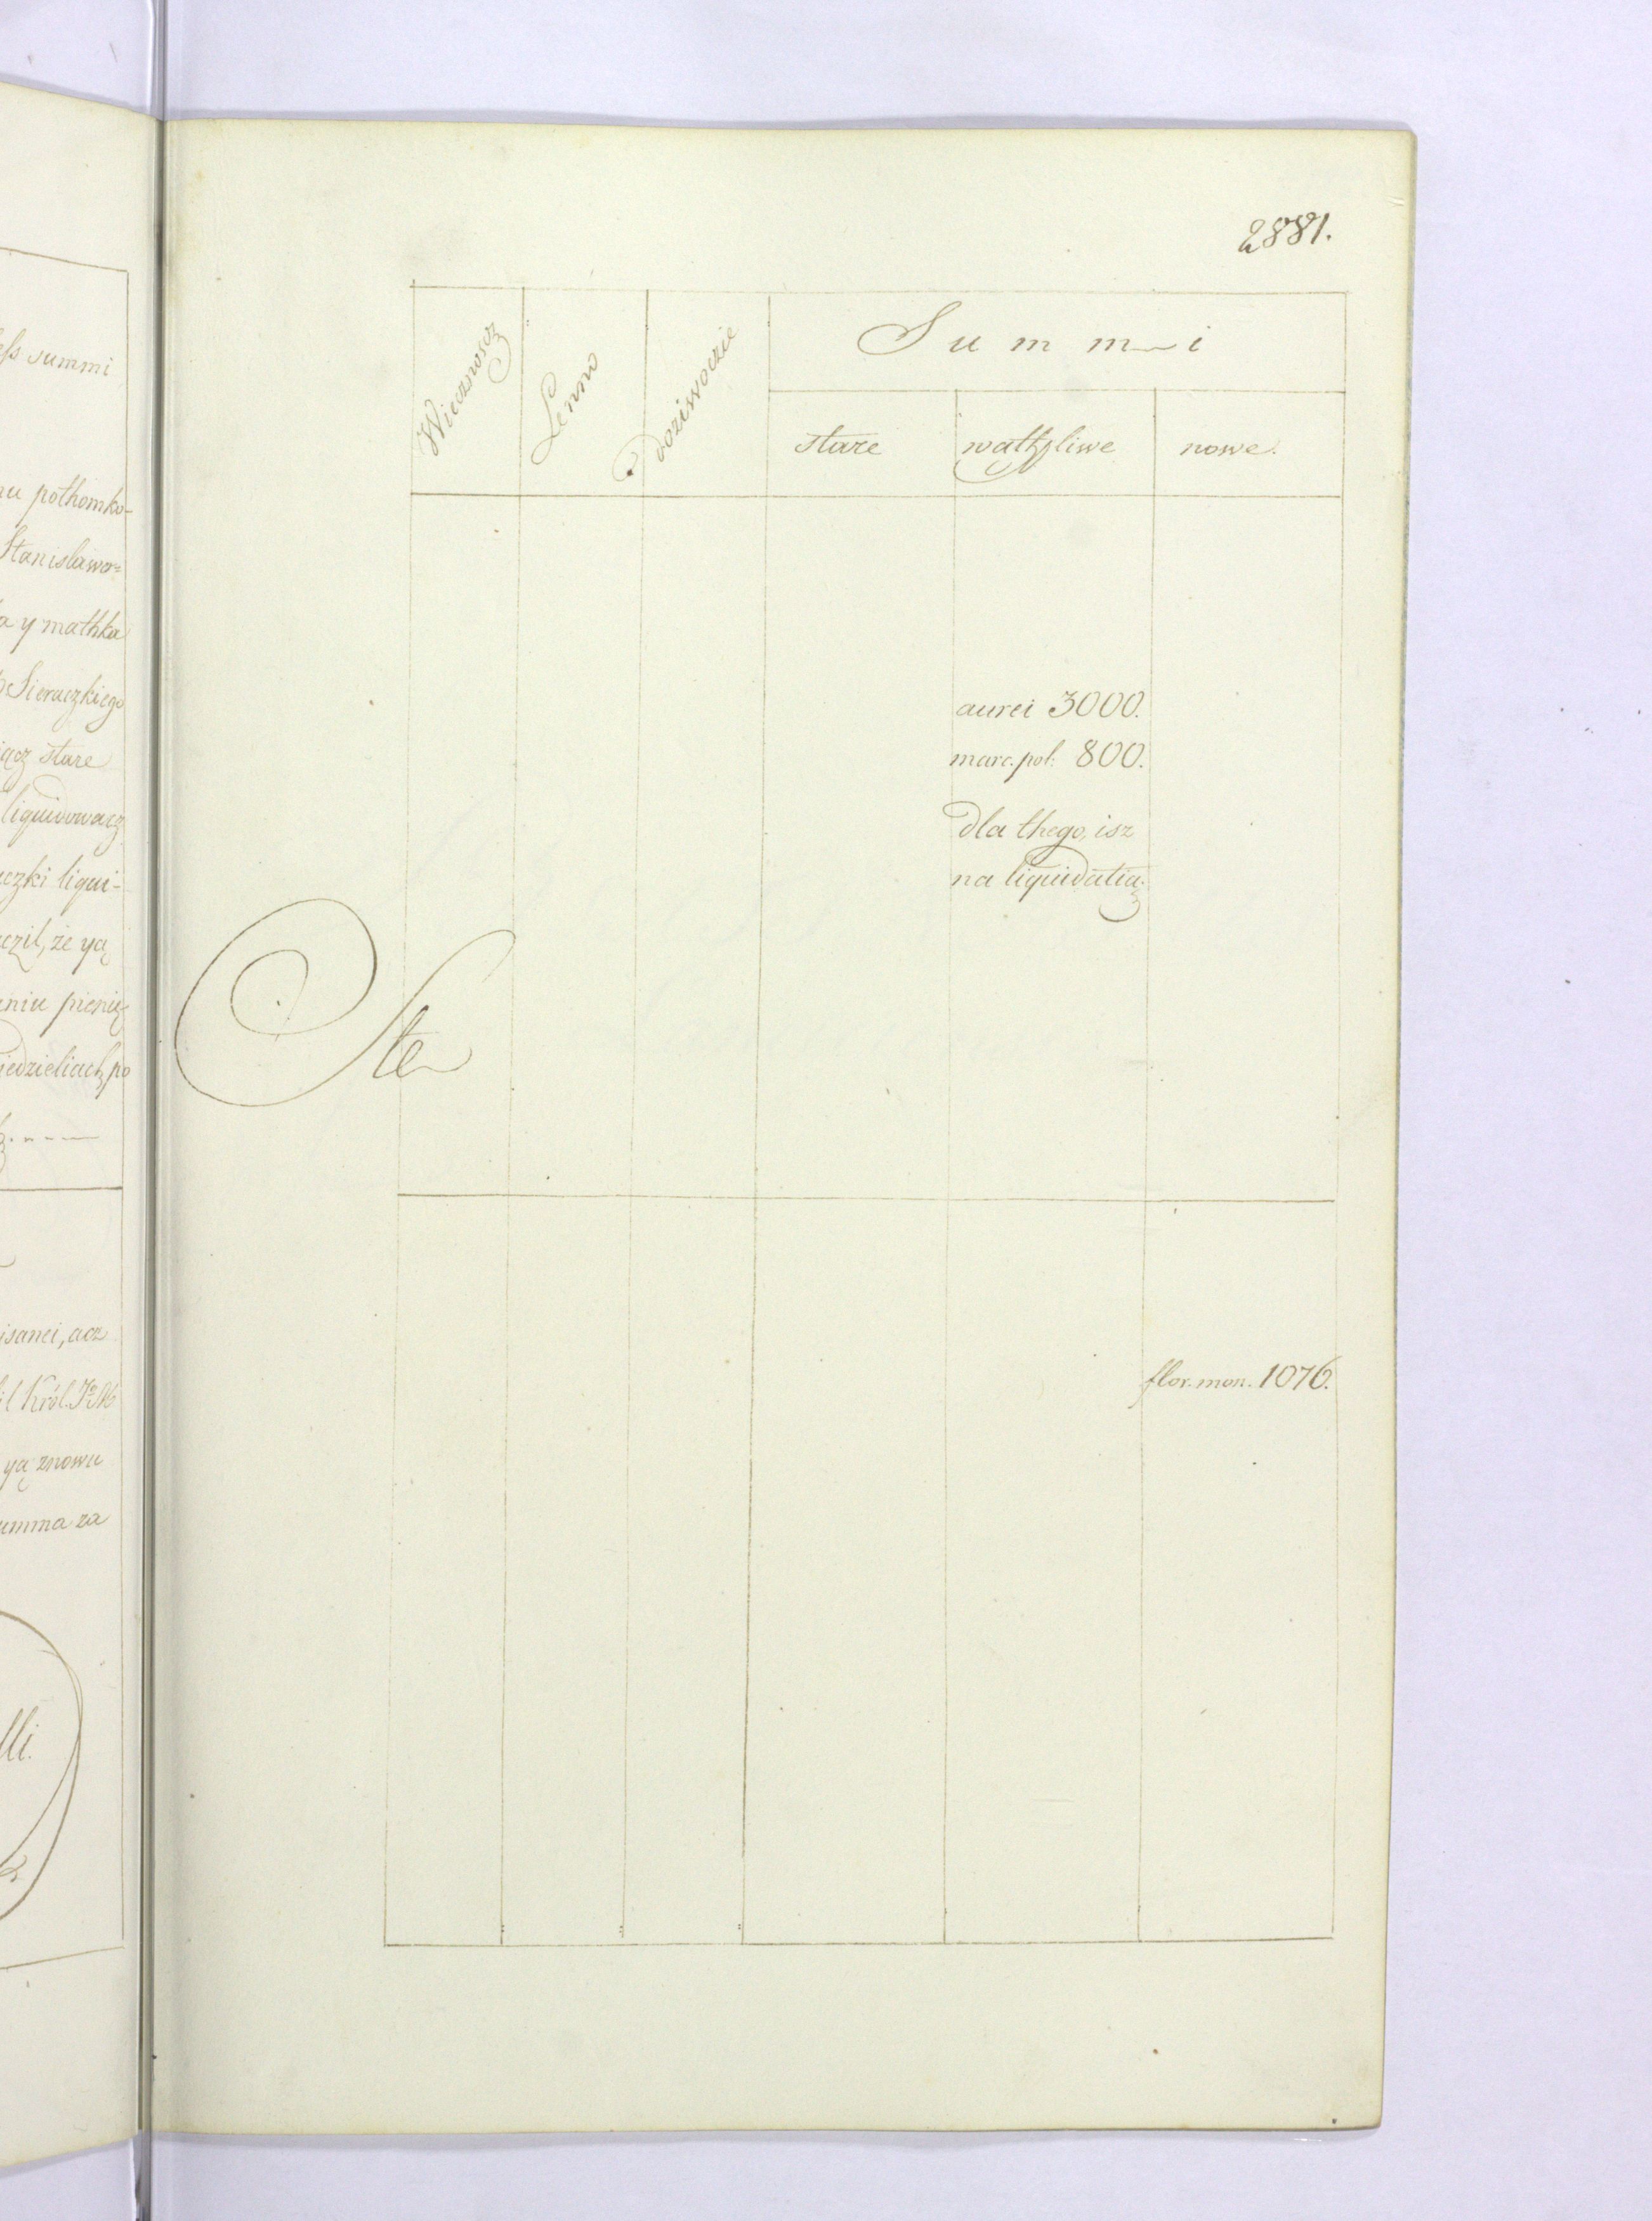 ess summi
nu pothomko-
Stanislawo=
a y mathka
Sieraczkiego
iącz stare
liquidowacz
aczki liqui-
czil, że yą
aniu pienię
iedzieliach po
isanei, acz
il Król. Je M
yą znowu
umma za
lli.
2881.
Wiecznoscz
Lenno
doziwoczie
Summi
stare
wąthpliwe
nowe.
aurei 3000.
marc. pol: 800.
dla thego, isz
na liquidatią.
Ste
flor. mon. 1076.